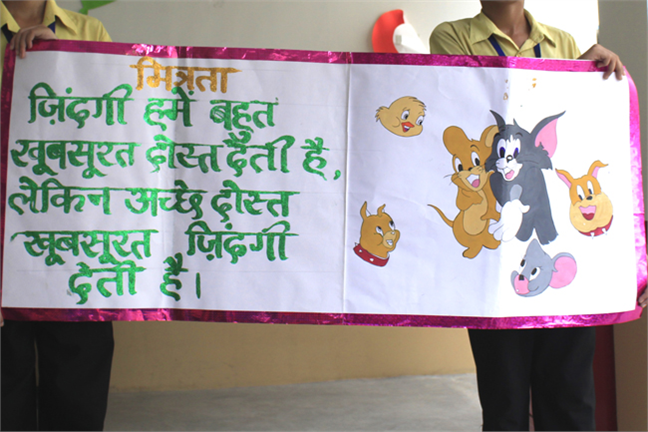 मित्रता
ज़िंदगी हमें बहुत
खूबसूरत दोस्त देती है,
लेकिन अच्छे दोस्त
खूबसूरत ज़िंदगी
देती है।